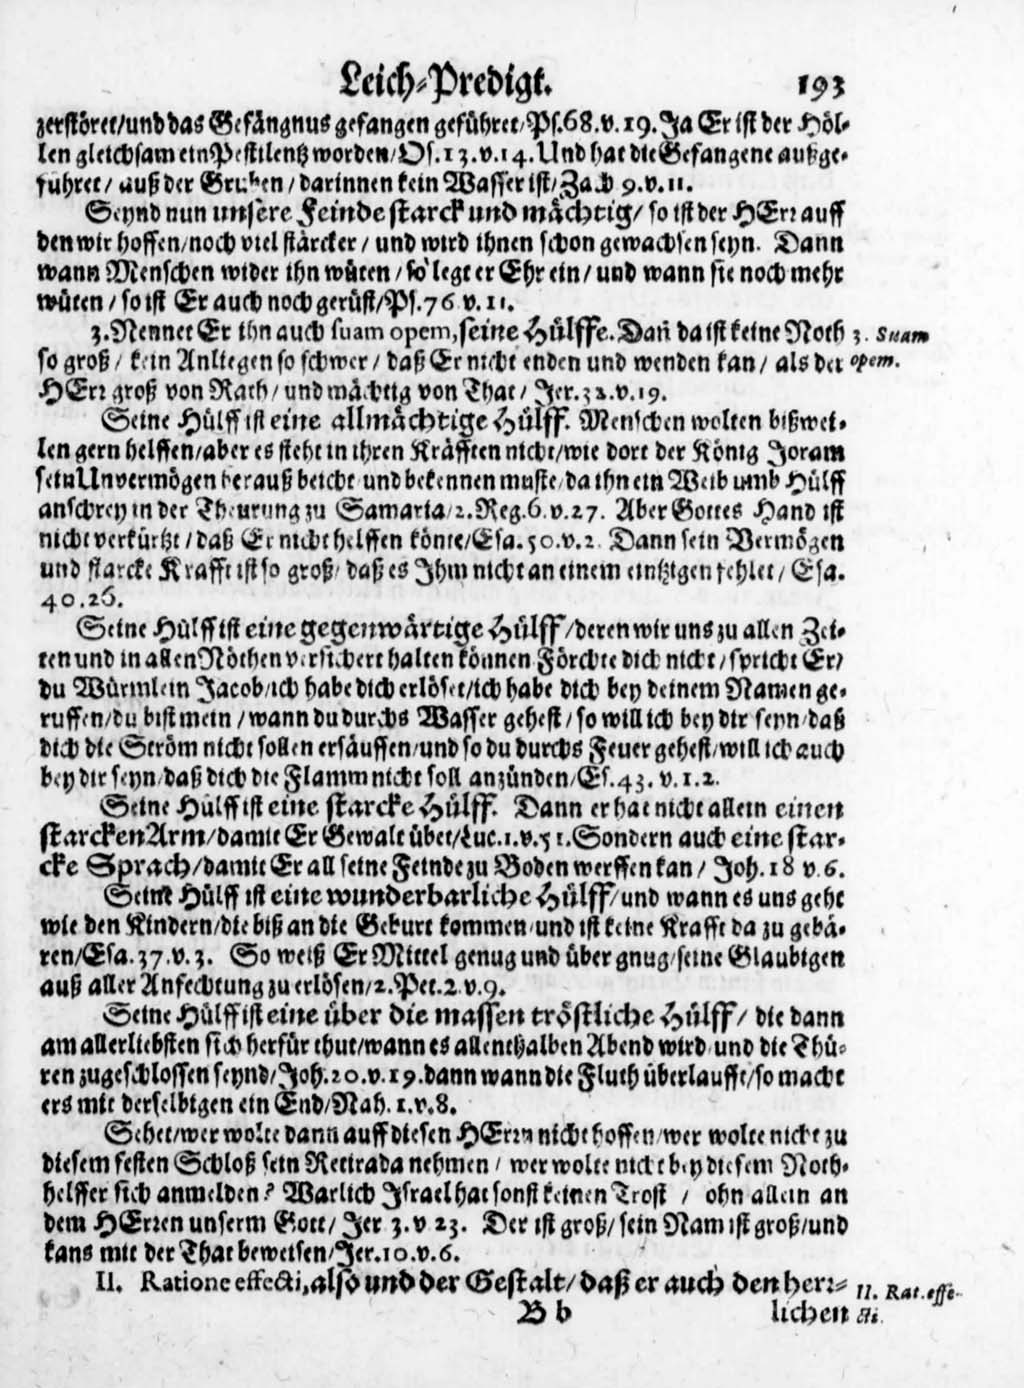 Leich-Predigt. 193
zerstöret/und das Gefängnus gefangen geführet/Ps.68.v.19. Ja Er ist der Höl-
len gleichsam ein Pestilentz worden/Os.13.v.14. Und hat die Gefangene außge-
führet / auß der Gruben / darinnen kein Wasser ist/Zach 9.v.11.
Seynd nun unsere Feinde starck und mächtig/ so ist der HErr auff
den wir hoffen/noch viel stärcker / und wird ihnen schon gewachsen seyn. Dann
wann Menschen wider ihn wüten / so legt er Ehr ein / und wann sie noch mehr
wüten / so ist Er auch noch gerüst/Ps.76 v.11.
3. Nennet Er ihn auch suam opem, seine Hülffe. Dañ da ist keine Noth 3. Suam
so groß / kein Anliegen so schwer / daß Er nicht enden und wenden kan / als der opem.
HErr groß von Rath / und mächtig von That / Jer.32.v.19.
Seine Hülff ist eine allmächtige Hülff. Menschen wolten bißwei-
len gern helffen/aber es steht in ihren Kräfften nicht/wie dort der König Joram
sein Unvermögen herauß beicht und bekennen muste/da ihn ein Weib umb Hülff
anschrey in der Theurung zu Samaria/2.Reg.6.v.27. Aber Gottes Hand ist
nicht verkürtzt / daß Er nicht helffen könte/Esa.50.v.2. Dann sein Vermögen
und starcke Krafft ist so groß/ daß es Ihm nicht an einem eintzigen fehlet / Esa.
40.26.
Seine Hülff ist eine gegenwärtige Hülff/deren wir uns zu allen Zei-
ten und in allen Nöthen versichert halten können Förchte dich nicht / spricht Er/
du Würmlein Jacob/ich habe dich erlöset/ich habe dich bey deinem Namen ge-
ruffen/du bist mein / wann du durchs Wasser gehest / so will ich bey dir seyn/daß
dich die Ström nicht sollen ersäuffen/und so du durchs Feuer gehest/will ich auch
bey dir seyn/daß dich die Flamm nicht soll anzünden/Es.43. v.1.2.
Seine Hülff ist eine starcke Hülff. Dann er hat nicht allein einen
starcken Arm/damit Er Gewalt übet/Luc.1.v.51. Sondern auch eine star-
cke Sprach/damit Er all seine Feinde zu Boden werffen kan / Joh.18 v.6.
Seine Hülff ist eine wunderbarliche Hülff/und wann es uns geht
wie den Kindern/die biß an die Geburt kommen/und ist keine Krafft da zu gebä-
ren/Esa.37.v.3. So weiß Er Mittel genug und über gnug/seine Glaubigen
auß aller Anfechtung zu erlösen/2.Pet.2.v.9.
Seine Hülff ist eine über die massen tröstliche Hülff/ die dann
am allerliebsten sich herfür thut/wann es allenthalben Abend wird und die Thü-
ren zugeschlossen seynd/Joh.20.v.19. dann wann die Fluth überlaufft/so macht
ers mit derselbigen ein End/Nah.1.v.8.
Sehet/wer wolte dann auff diesen HErrn nicht hoffen/wer wolte nicht zu
diesem festen Schloß sein Retirada nehmen / wer wolte nicht bey diesem Noth-
helffer sich anmelden? Warlich Israel hat sonst keinen Trost / ohn allein an
dem HErren unserm Gott / Jer 3.v 23. Der ist groß/ sein Nam ist groß/und
kans mit der That beweisen/Jer.10.v.6.
II. Ratione effecti, also und der Gestalt/ daß er auch den herr- II. Rat. effe-
B b lichen cti.